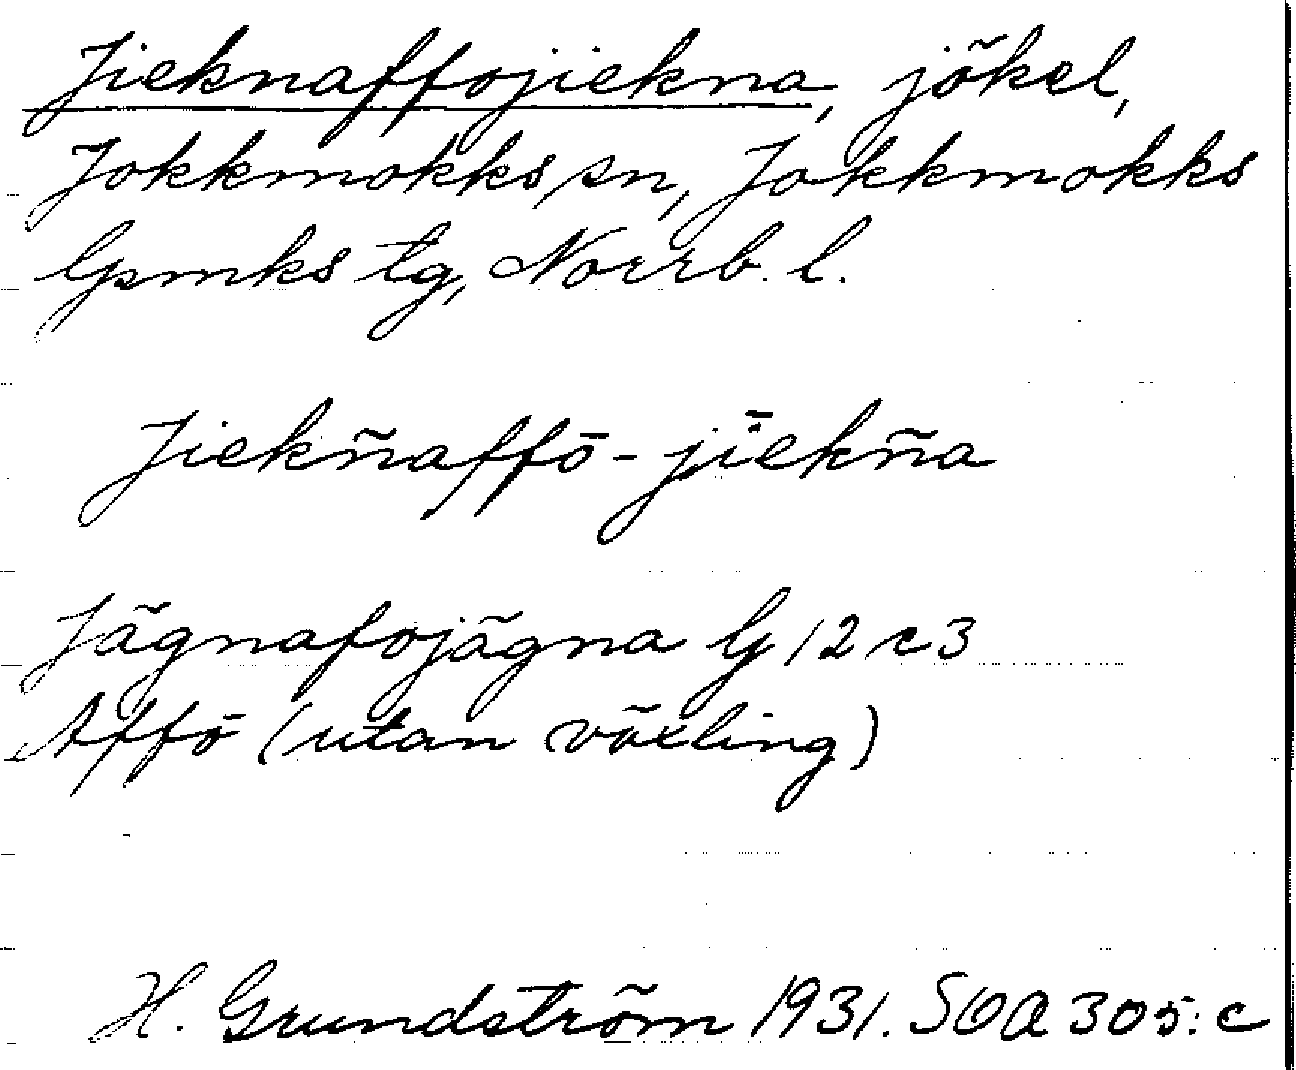 Jieknaffojiekna, jökel,
Jokkmokks sn, Jokkmokks
lpmks tg, Norrb. l.
Jiekñaffō-jīekña
Jägnafojägna G 12 c 3
Affō (utan växling)
H. Grundström 1931. SOA 305:c